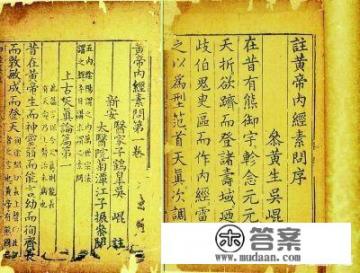 註黄帝內經素問序
叅黄生吳崐
在昔有熊御宇軫念元元
夭折欲躋而登諸壽域廼
岐伯鬼臾區而作內經雷
之以為型范首天真次調
黄帝內經素問第一卷
新安
醫家子鶴皐吳崐註
太醫院菊潭江子振參閱
上古天真論篇第一
昔在黄帝生而神靈弱而能言幼而徇齊長
而敦敏成而登天
答案
www.mudaan.com